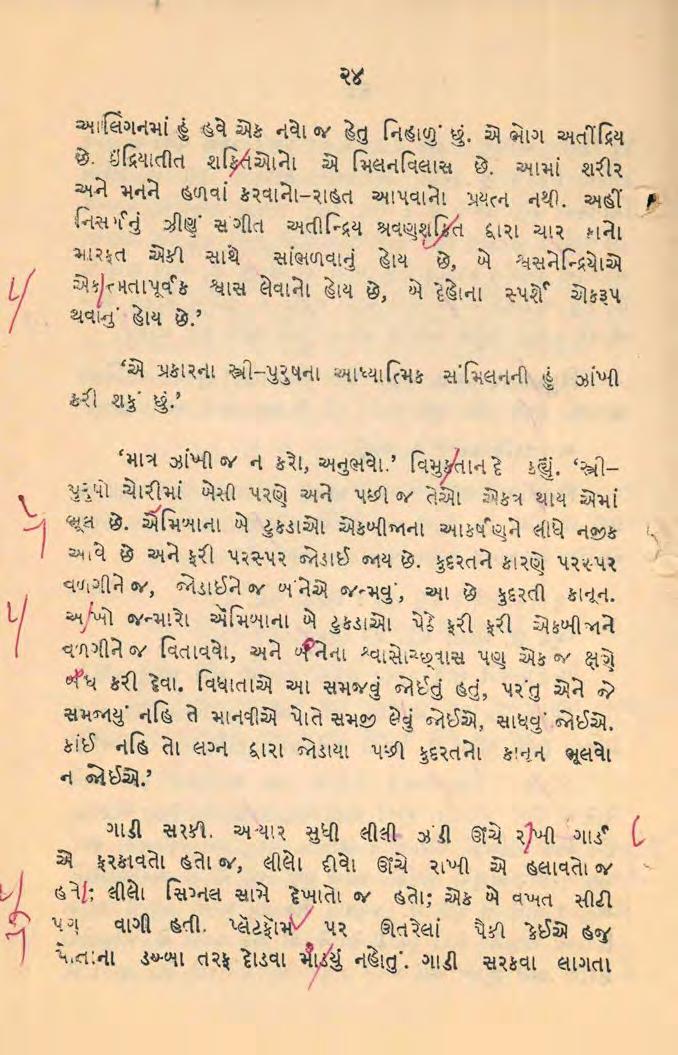 ૨૪
આલિંગનમાં હું હવે એક નવો જ હેતુ નિહાળું છું. એ ભોગ અતીંદ્રિય
છે. ઇંદ્રિયાતીત શક્તિઓનો એ મિલનવિલાસ છે. આમાં શરીર
અને મનને હળવાં કરવાનો–રાહત આપવાનો પ્રયત્ન નથી. અહીં
નિસર્ગનું ઝીણું સંગીત અતીન્દ્રિય શ્રવણશક્તિ દ્વારા ચાર કાનો
મારફત એકી સાથે સાંભળવાનું હોય છે, બે શ્વસનેન્દ્રિયોએ
એકાત્મતાપૂર્વક શ્વાસ લેવાનો હોય છે, બે દેહોના સ્પર્શે એકરૂપ
થવાનું હોય છે.’
‘એ પ્રકારના સ્ત્રી–પુરુષના આધ્યાત્મિક સંમિલનની હું ઝાંખી
કરી શકું છું.’
‘માત્ર ઝાંખી જ ન કરો, અનુભવો.’ વિમુક્તાનંદે કહ્યું. ‘સ્ત્રી–
પુરુષો ચોરીમાં બેસી પરણે અને પછી જ તેઓ એકત્ર થાય એમાં
ભૂલ છે. ઍમિબાના બે ટુકડાઓ એકબીજાના આકર્ષણને લીધે નજીક
આવે છે અને ફરી પરસ્પર જોડાઈ જાય છે. કુદરતને કારણે પરસ્પર
વળગીને જ, જોડાઈને જ બંનેએ જન્મવું, આ છે કુદરતી કાનૂન.
આખો જન્મારો ઍમિબાના બે ટુકડાઓ પેઠે ફરી ફરી એકબીજાને
વળગીને જ વિતાવવો, અને બંનેના શ્વાસોચ્છ્વાસ પણ એક જ ક્ષણે
બંધ કરી દેવા. વિધાતાએ આ સમજવું જોઈતું હતું, પરંતુ એને જે
સમજાયું નહિ તે માનવીએ પોતે સમજી લેવું જોઈએ, સાધવું જોઈએ.
કાંઈ નહિ તો લગ્ન દ્વારા જોડાયા પછી કુદરતનો કાનૂન ભૂલવો
ન જોઈએ.’
ગાડી સરકી. અત્યાર સુધી લીલી ઝંડી ઊંચે રાખી ગાર્ડ
એ ફરકાવતો હતો જ, લીલો દીવો ઊંચે રાખી એ હલાવતો જ
હતો; લીલો સિગ્નલ સામે દેખાતો જ હતો; એક બે વખત સીટી
પણ વાગી હતી. પ્લૅટફૉર્મ પર ઊતરેલાં પૈકી કોઈએ હજુ
પોતાના ડબ્બા તરફ દોડવા માંડ્યું નહોતું. ગાડી સરકવા લાગતા